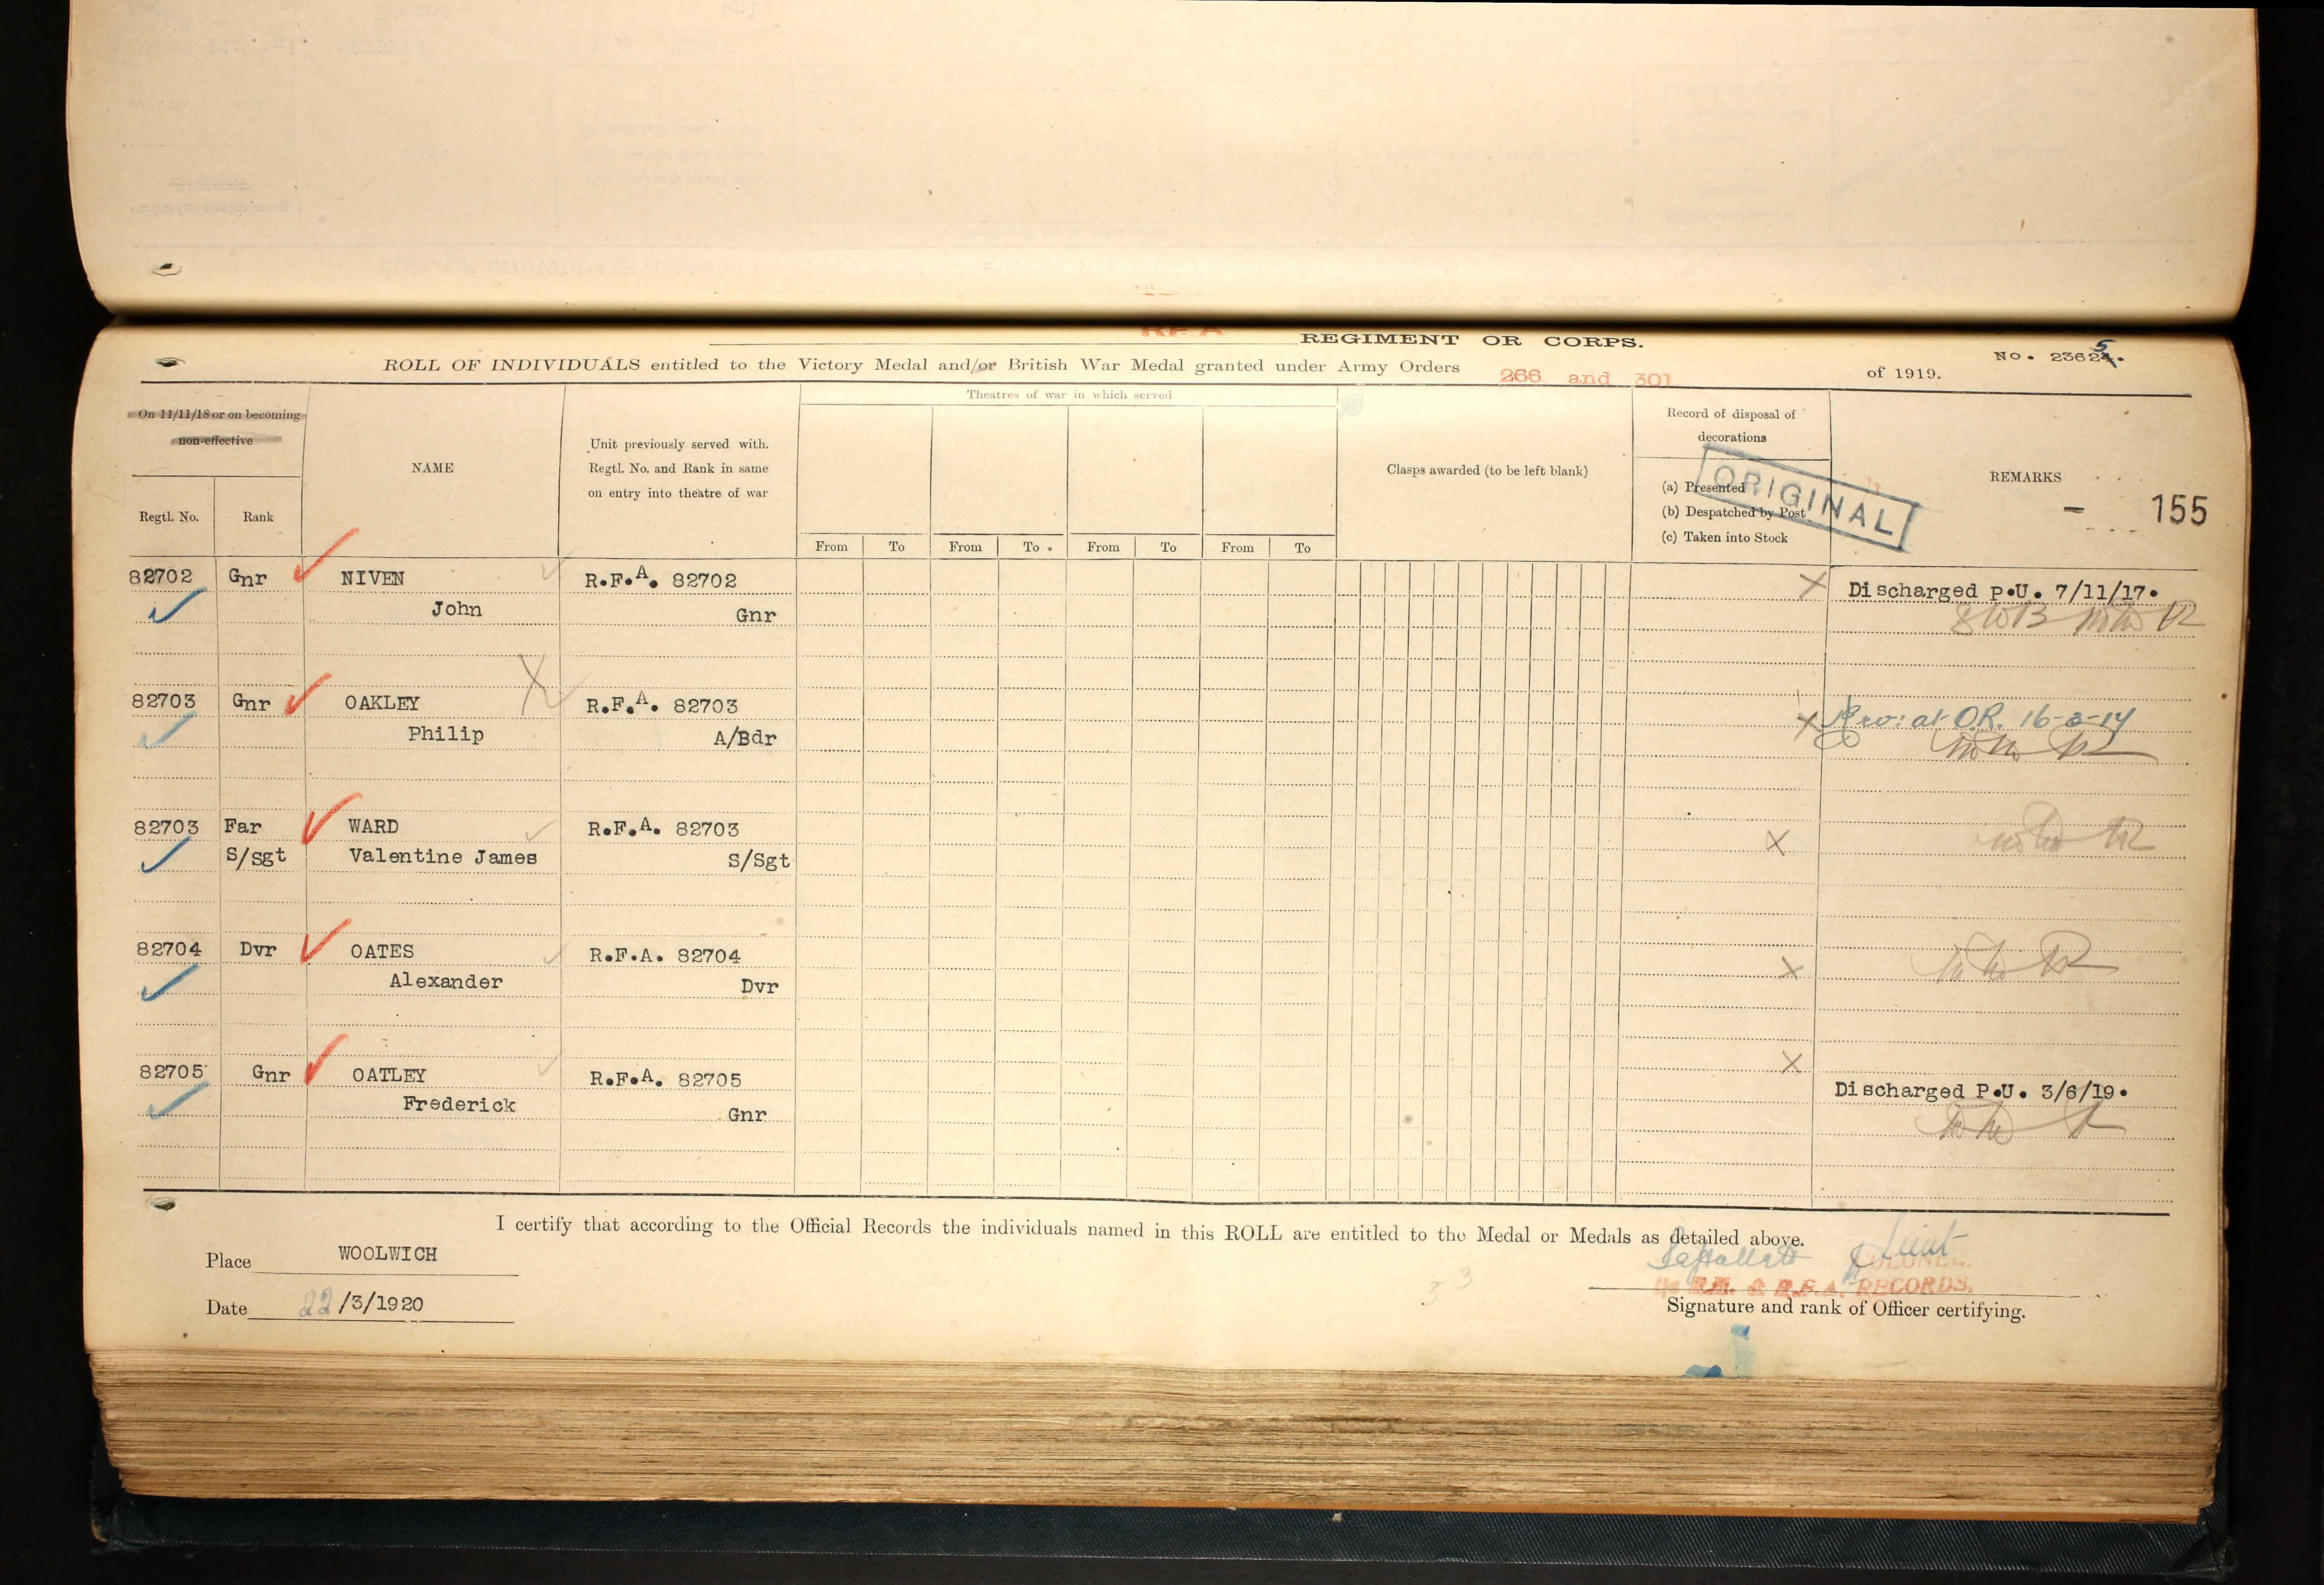 RFA REGIMENT OR CORPS.
No. 23625.
ROLL OF INDIVIDUALS entitled to the Victory Medal and/or British War Medal granted under Army Orders 266 and 301 of 1919.
On 11/11/18 or on becoming
non-effective
Regtl. No.
Rank
NAME
Unit previously served with.
Regtl. No. and Rank in same
on entry into theatre of war
Theatres of war in which served
From To From To From To From To
Clasps awarded (to be left blank)
Record of disposal of
decorations
(a) Presented
(b) Despatched by Post
(c) Taken into Stock
ORIGINAL
REMARKS
- 155
82702 Gnr NIVEN R.F.A. 82702 Discharged P.U. 7/11/17.
John Gnr
82703 Gnr OAKLEY R.F.A. 82703
Philip A/Bdr
82703 Far WARD R.F.A. 82703
S/Sgt Valentine James S/Sgt
82704 Dvr OATES R.F.A. 82704
Alexander Dvr
82705 Gnr OATLEY R.F.A. 82705 Discharged P.U. 3/6/19.
Frederick Gnr
I certify that according to the Official Records the individuals named in this ROLL are entitled to the Medal or Medals as detailed above.
Place WOOLWICH
Date 22/3/1920
COLONEL.
R.H. & R.F.A. RECORDS.
Signature and rank of Officer certifying.